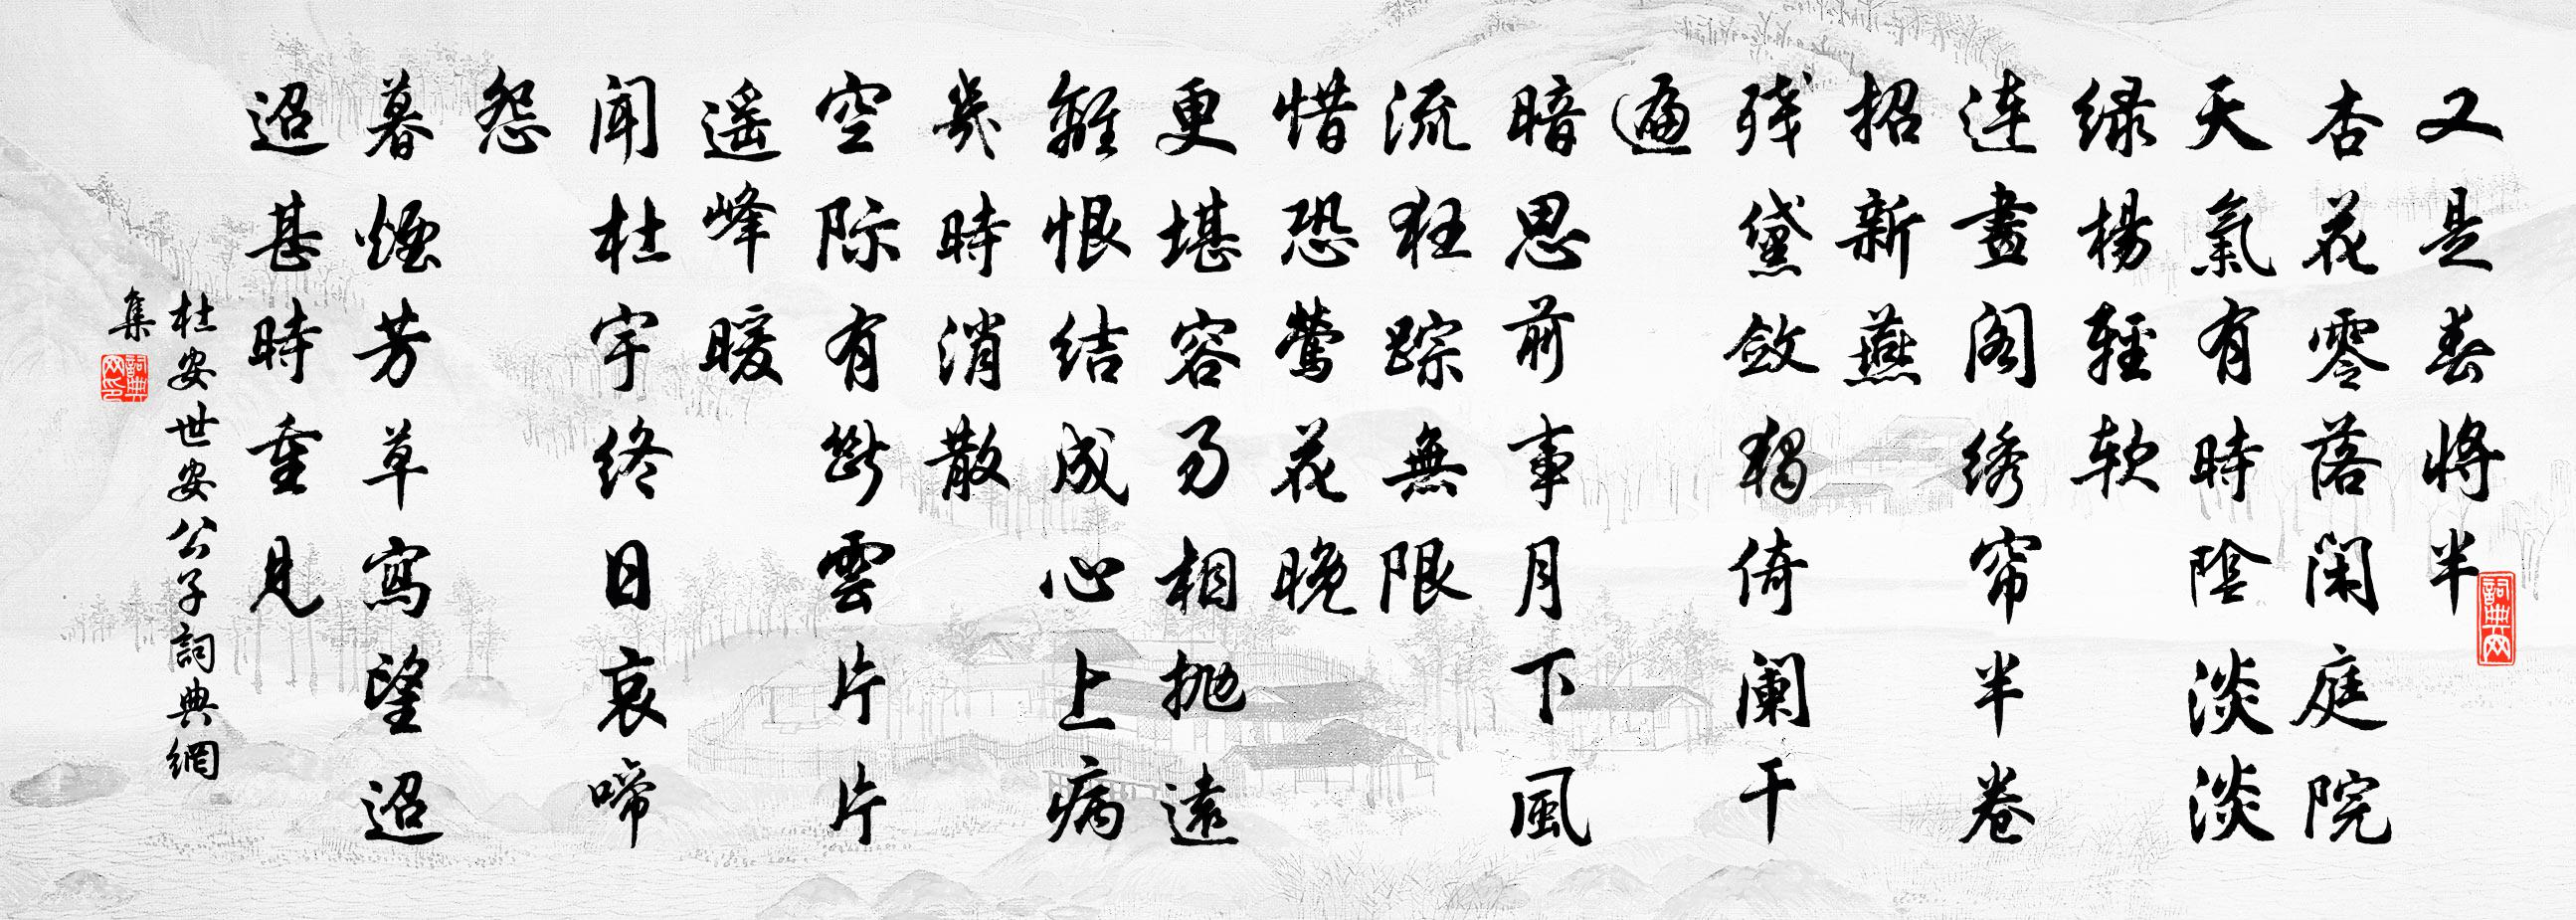 又是春将半
杏花零落闲庭院
天氣有時陰淡淡
緑楊輕軟
連畫阁绣帘半卷
招新燕
残黛斂獨倚阑干
遍
暗思前事月下風
流狂踪無限
惜恐鶯花晚
更堪容易相抛遠
離恨结成心上病
幾時消散
空际有斷雲片片
遥峰暖
闻杜宇终日哀啼
怨
暮煙芳草寫望迢
迢甚時重見
杜安世安公子詞典網
集
詞典网
詞典网印